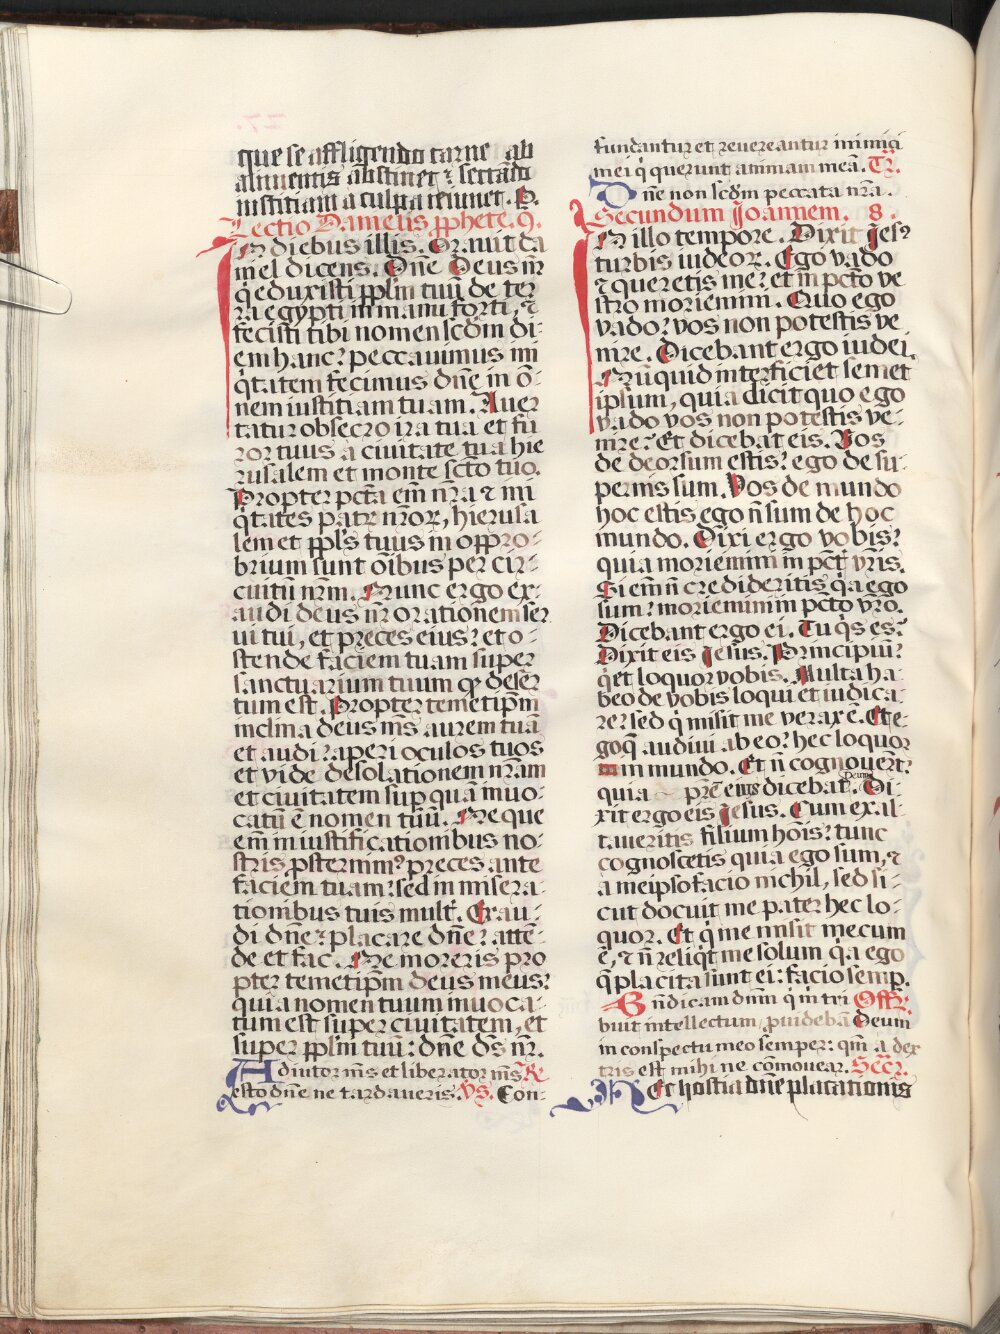 que se affligendo carne ab
alimentis abstinet ⁊ sectādo
iustitiam a culpa ieiunet. P.
Lectio Danielis ꝓphete. 9.
In diebus illis. Orauit da
niel dicens. Dn̄e Deus nr̄
q̇ eduxisti pp̄lm tuū de ter
ra egypti in manu forti, ⁊
fecisti tibi nomen scd̄m di-
em hanc: peccauimus ini
q̇tatem fecimus dn̄e in ō-
nem iustitiam tuam. Auer
tatur obsecro ira tua et fu
ror tuus a ciuitate tua hie
rusalem et monte sc̄to tuo.
Propter pctā em̄ nr̄a ⁊ ini
q̇tates patr̄ nr̄oꝝ, hierusa
lem et pp̄ls tuus in oppro-
brium sunt oībus per cir-
cuitū nr̄m. Nunc ergo ex-
audi deus nr̄ orationem ser
ui tui, et preces eius: et o-
stende faciem tuam super
sanctuarium tuum qd̄ deser
tum est. Propter temetip̄m
inclina deus ms̄ aurem tuā
et audi: aperi oculos tuos
et vide desolationem nr̄am
et ciuitatem sup quā inuo-
catū ē nomen tuū. Neque
em̄ in iustificationibus no-
stris ꝓsternim⁹ preces ante
faciem tuam: sed in misera-
tionibus tuis mult̄. Exau-
di dn̄e: placare dn̄e: attē-
de et fac. Ne moreris pro
pter temetip̄m deus meus:
quia nomen tuum inuoca-
tum est super ciuitatem, et
super pp̄lm tuū: dn̄e ds̄ nr̄.
Adiutor ms̄ et liberator ms̄ ℟
esto dn̄e ne tardaueris. Vs. Con-
fundantur et reuereantur inimici
mei q̇ querunt animam meā. Tr.
Dn̄e non scd̄m peccata nr̄a.
Secundum Joannem. 8.
In illo tempore. Dixit Jesꝰ
turbis iudeoꝝ. Ego vado
⁊ queretis me: et in pctō ve
stro moriemini. Quo ego
vado: vos non potestis ve
nire. Dicebant ergo iudei.
Nūquid interficiet semet
ipsum, quia dicit quo ego
vado vos non potestis ve-
nire? Et dicebat eis. Vos
de deorsum estis: ego de su-
pernis sum. Vos de mundo
hoc estis ego n̄ sum de hoc
mundo. Dixi ergo vobis:
quia moriemini in pct̄ vr̄is.
Si em̄ n̄ credideritis q̇a ego
sum: moriemini in pctō vr̄o.
Dicebant ergo ei. Tu q̇s es?
Dixit eis Jesus. Principiū:
q̇ et loquor vobis. Multa ha-
beo de vobis loqui et iudica-
re: sed q̇ misit me verax ē. Et e-
goq̄ audiui ab eo: hec loquor
in mundo. Et n̄ cognouerūt:
quia pr̄ē eius dicebat Deum. Di-
xit ergo eis Jesus. Cum exal-
taueritis filium hoīs: tunc
cognoscetis quia ego sum, ⁊
a meipso facio nichil, sed si-
cut docuit me pater hec lo-
quor. Et q̇ me misit mecum
ē, ⁊ n̄ reliq̇t me solum q̇a ego
q̄ placita sunt ei: facio semp.
Bn̄dicam dnm̄ q̇ m̄ tri Offr.
buit intellectum, ꝓuidebā Deum
in conspectu meo semper: qm̄ a dex
tris est mihi ne cōmouear. Secr.
Hec hostia dn̄e placationis